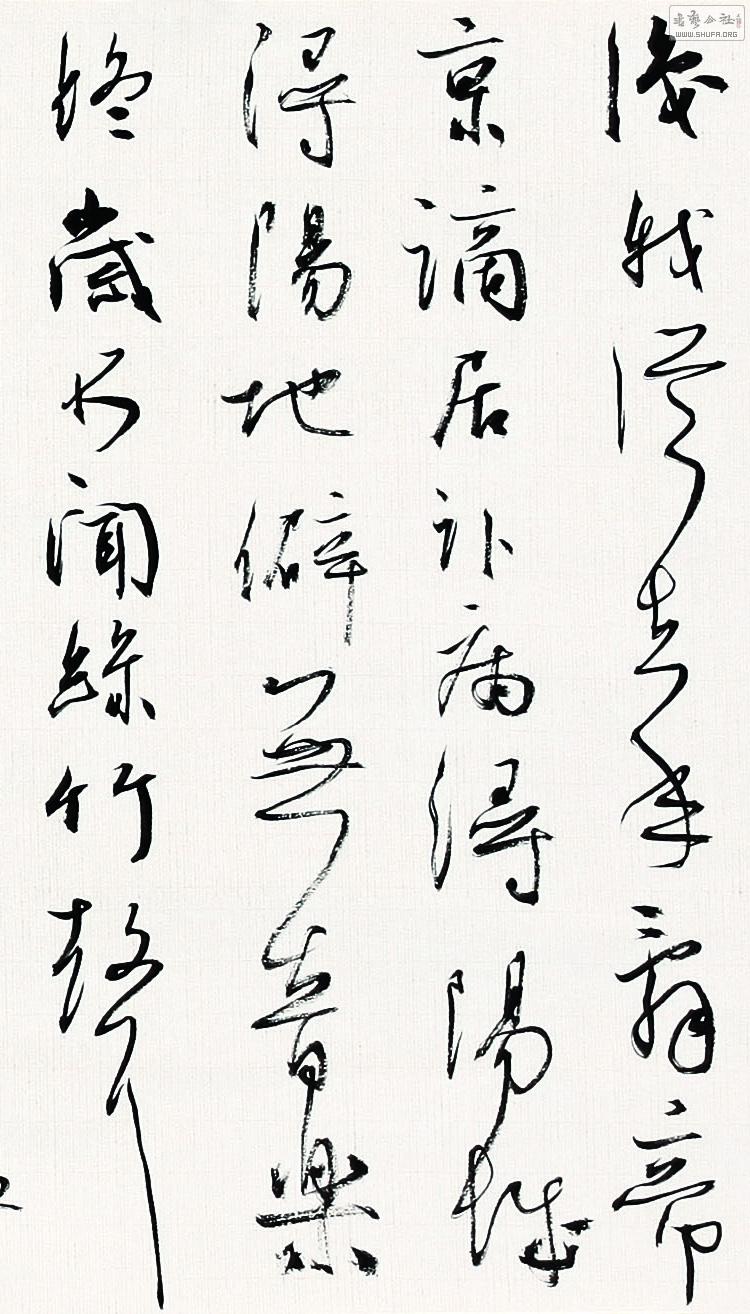 識我從去年辭帝
京謫居卧病潯陽城
潯陽地僻無音樂
終歲不聞絲竹聲
書藝公社
WWW.SHUFA.ORG